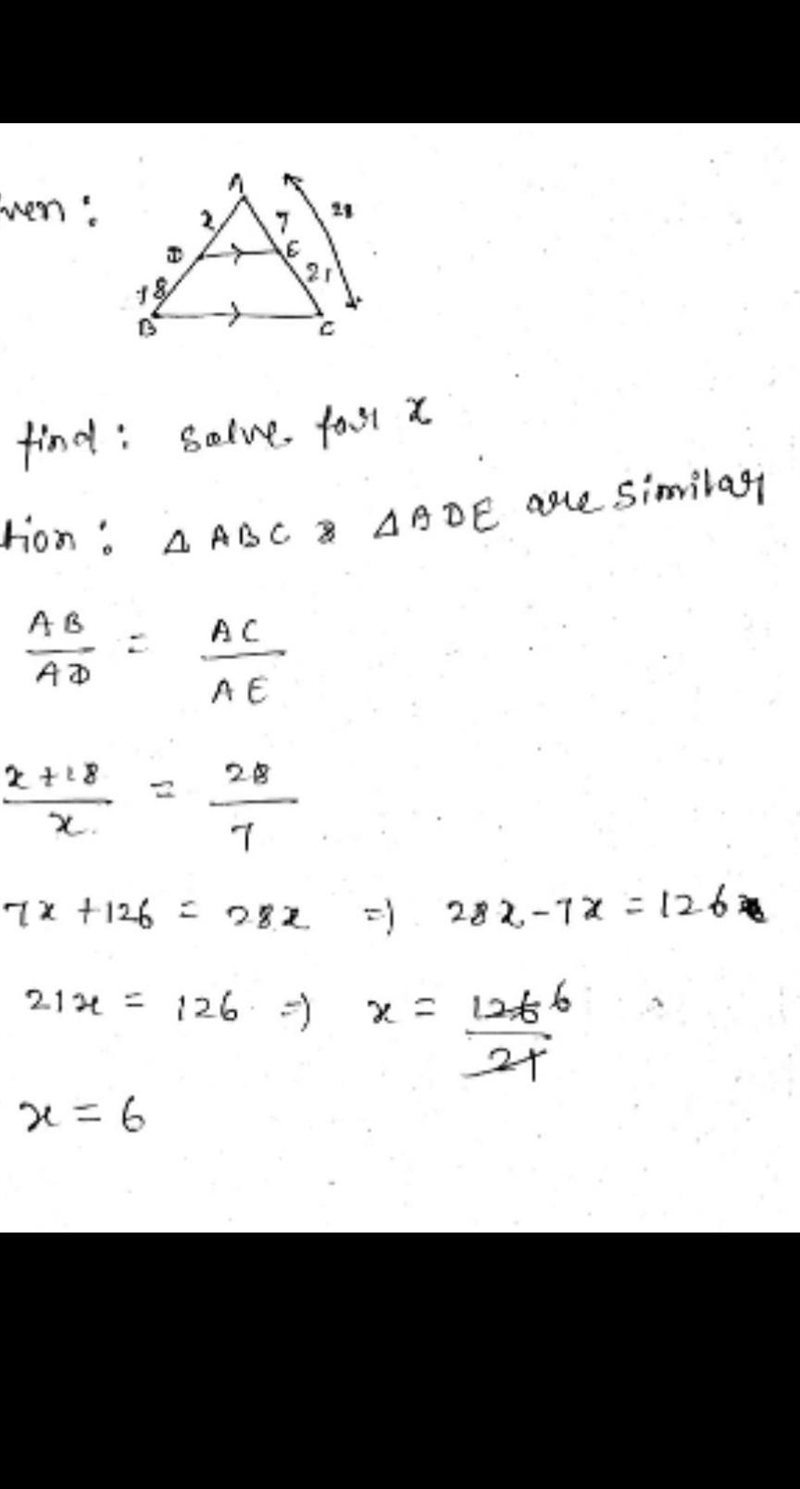 ven :
A
x 7 28
D E
18 21
B C
find : Solve for x
tion : Δ ABC & Δ ADE are similar
AB/AD = AC/AE
x+18/x = 28/7
7x + 126 = 28x => 28x - 7x = 126
21x = 126 => x = 126/21 6
x = 6